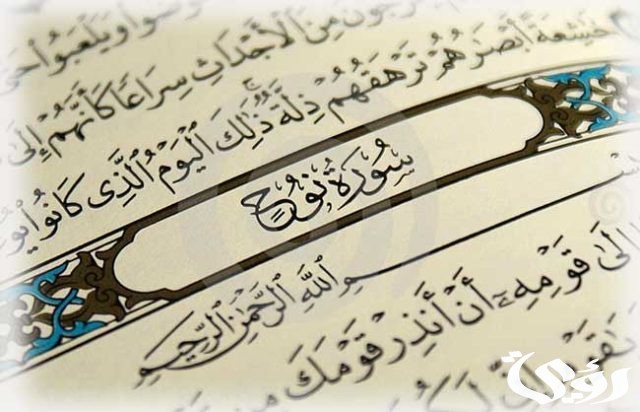 ضُوا۟ وَيَلْعَبُوا۟
مِنَ ٱلْأَجْدَاثِ سِرَاعًا كَأَنَّهُمْ إِلَىٰ
خَٰشِعَةً أَبْصَٰرُهُمْ تَرْهَقُهُمْ ذِلَّةٌ ذَٰلِكَ ٱلْيَوْمُ ٱلَّذِى كَانُوا۟
سُورَةُ نُوحٍ
بِسْمِ ٱللَّهِ ٱلرَّحْمَٰنِ ٱلرَّحِيمِ
إِلَىٰ قَوْمِهِۦٓ أَنْ أَنذِرْ قَوْمَكَ مِن
رؤى